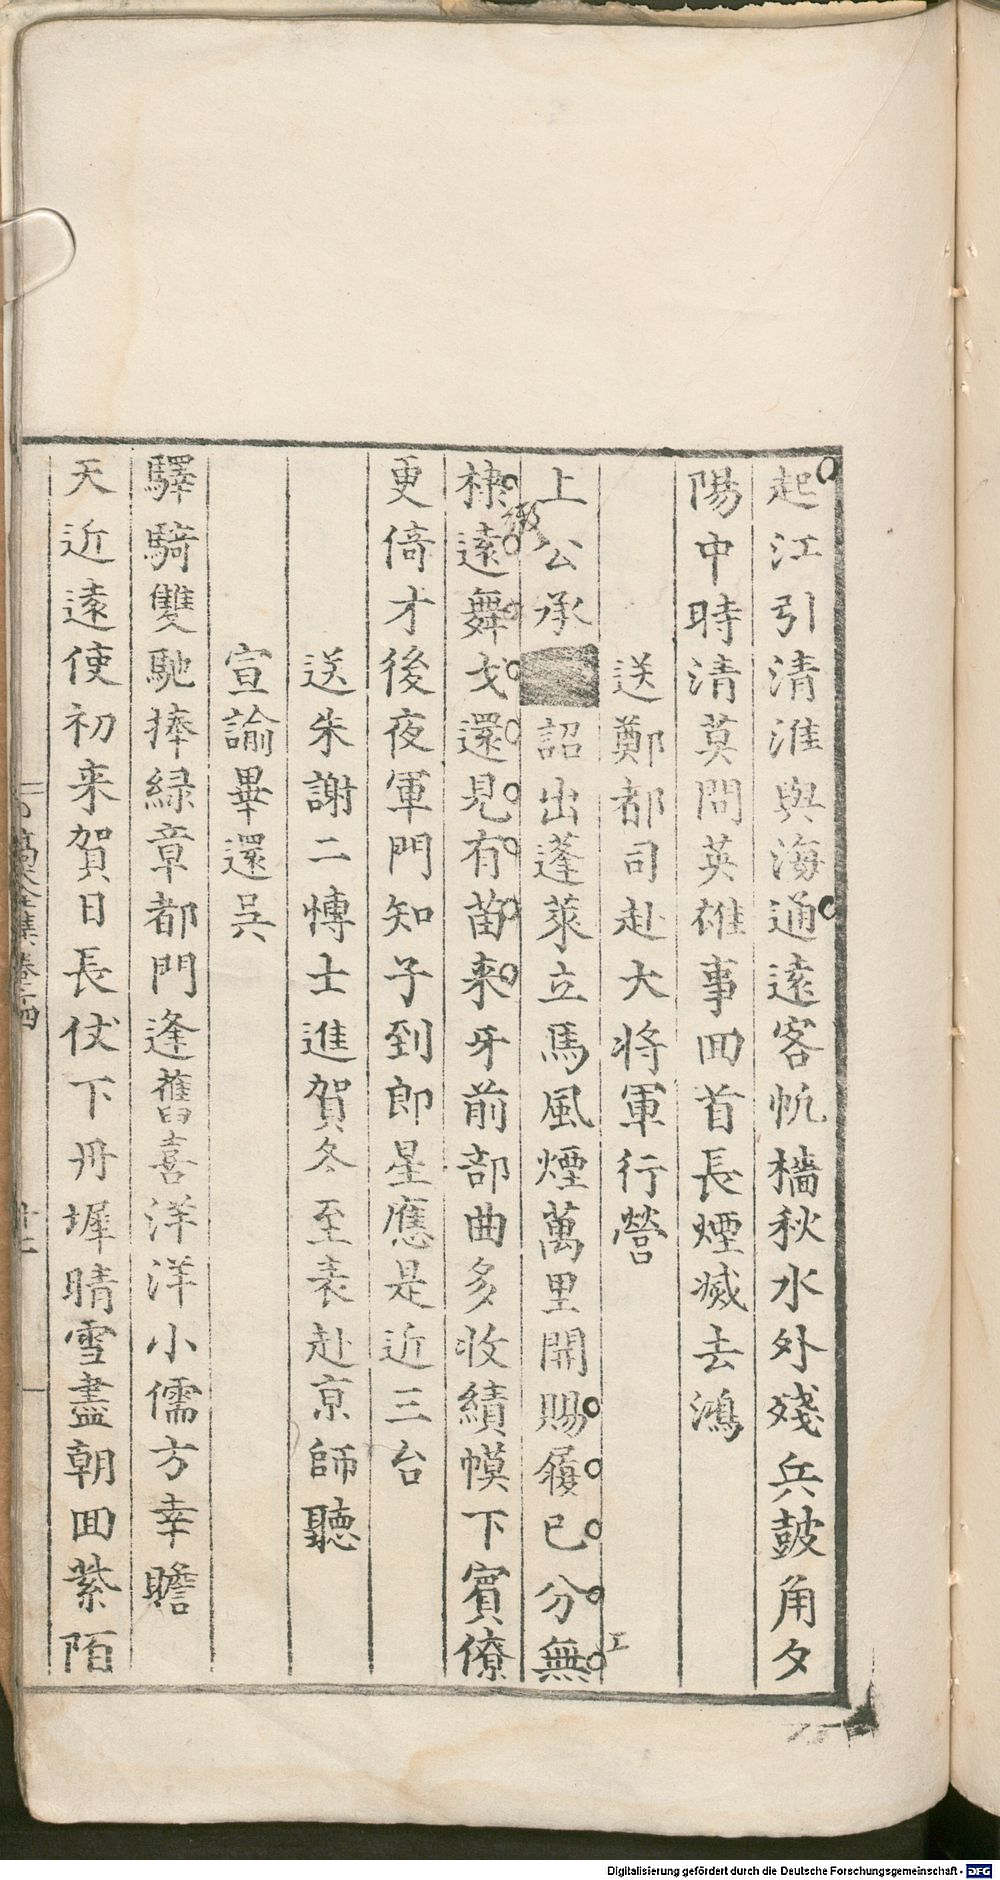 起江引清淮與海通遠客帆檣秋水外殘兵鼓角夕
陽中時清莫問英雄事囬首長煙滅去鴻
送鄭都司赴大將軍行營
上公承詔出蓬萊立馬風煙萬里開賜履已分無
棣遠舞戈還見有苗来牙前部曲多收績幙下賓僚
更倚才後夜軍門知子到郎星應是近三台
送朱謝二博士進賀冬至表赴京師聽
宣諭畢還吳
驛騎雙馳捧緑章都門逢舊喜洋洋小儒方幸瞻
天近遠使初来賀日長仗下丹墀晴雪盡朝囬紫陌
高太史全集卷十四
Digitalisierung gefördert durch die Deutsche Forschungsgemeinschaft - DFG